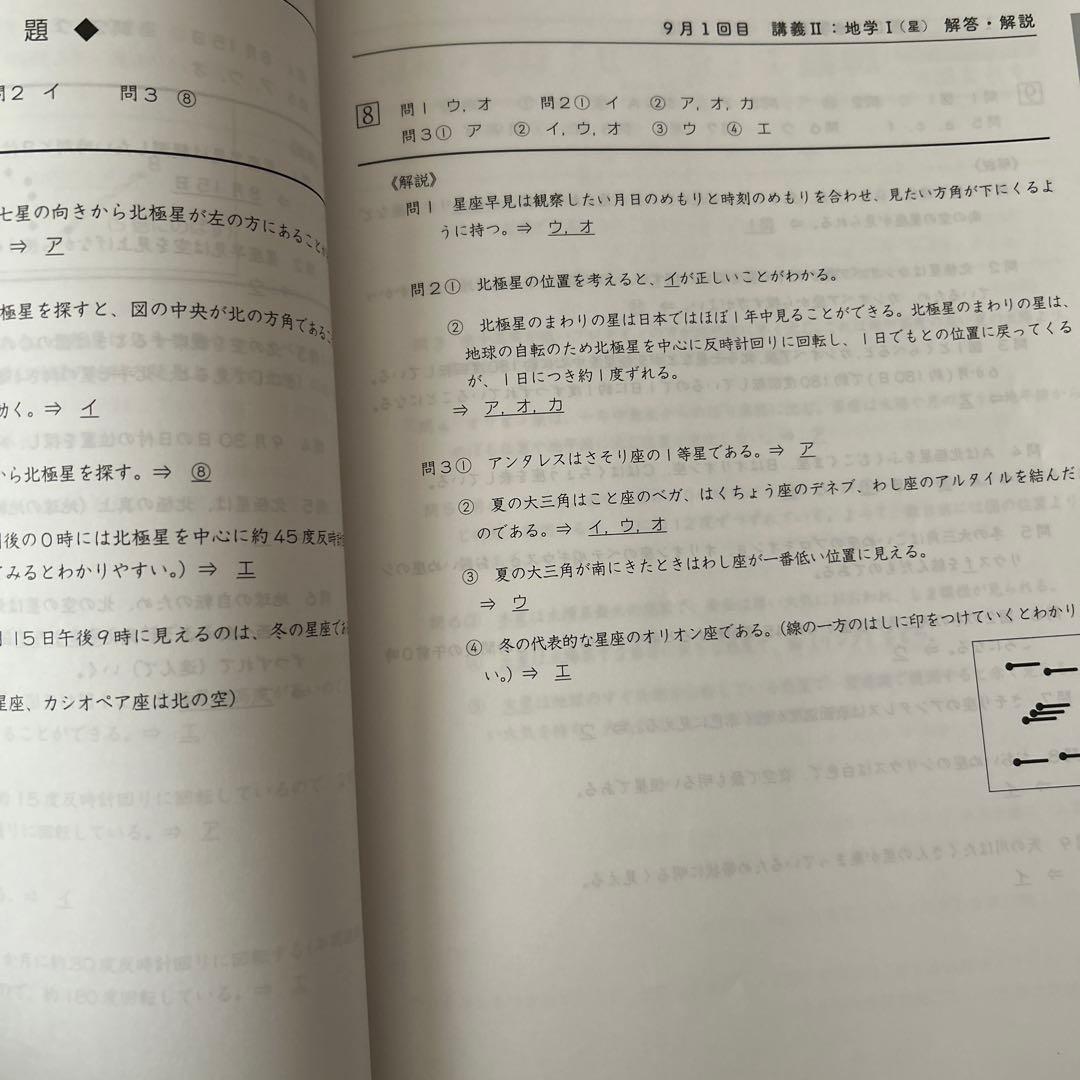 題 ◆
問2 イ 問3 ⑧
七星の向きから北極星が左の方にあること
⇒ ア
極星を探すと、図の中央が北の方角であるこ
動く。⇒ イ
から北極星を探す。⇒ ⑧
後の0時には北極星を中心に約45度反時
てみるとわかりやすい。) ⇒ エ
月15日午後9時に見えるのは、冬の星座で
星座、カシオペア座は北の空)
9月1回目 講義Ⅱ:地学Ⅰ(星) 解答・解説
8 問1 ウ, オ 問2① イ ② ア, オ, カ
問3① ア ② イ, ウ, オ ③ ウ ④ エ
《解説》
問1 星座早見は観察したい月日のめもりと時刻のめもりを合わせ、見たい方角が下にくるよ
うに持つ。⇒ ウ, オ
問2① 北極星の位置を考えると、イが正しいことがわかる。
② 北極星のまわりの星は日本ではほぼ1年中見ることができる。北極星のまわりの星は、
地球の自転のため北極星を中心に反時計回りに回転し、1日でもとの位置に戻ってくる
が、1日につき約1度ずれる。
⇒ ア, オ, カ
問3① アンタレスはさそり座の1等星である。⇒ ア
② 夏の大三角はこと座のベガ、はくちょう座のデネブ、わし座のアルタイルを結んだ
のである。⇒ イ, ウ, オ
③ 夏の大三角が南にきたときはわし座が一番低い位置に見える。
⇒ ウ
④ 冬の代表的な星座のオリオン座である。(線の一方のはしに印をつけていくとわかり
い。) ⇒ エ